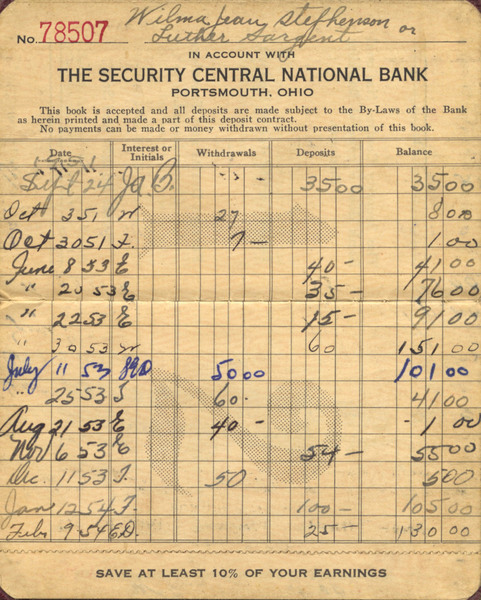 Wilma Jean Stephenson or
No. 78507 Luther Sargent
IN ACCOUNT WITH
THE SECURITY CENTRAL NATIONAL BANK
PORTSMOUTH, OHIO
This book is accepted and all deposits are made subject to the By-Laws of the Bank
as herein printed and made a part of this deposit contract.
No payments can be made or money withdrawn without presentation of this book.
Date Interest or Initials Withdrawals Deposits Balance
Sept 24 Jo B. 35 00 35 00
Oct 3 51 W 27 8 00
Oct 30 51 F. 7 — 1 00
June 8 53 E 40 — 41 00
" 20 53 E 35 — 76 00
" 22 53 E 15 — 91 00
" 30 53 W 60 151 00
July 11 53 50 00 101 00
" 25 53 60. 41 00
Aug 21 53 E 40 — 1 00
Nov 6 53 E 54 — 55 00
Dec. 11 53 F. 50. 5 00
Jan 12 54 F. 100 — 105 00
Feb 9 54 E.D. 25 — 130 00
SAVE AT LEAST 10% OF YOUR EARNINGS